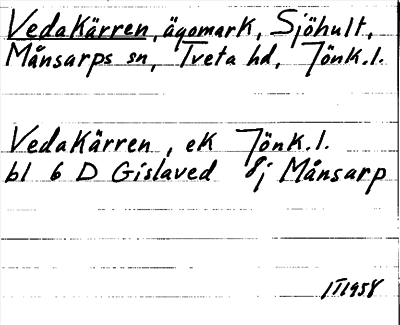 Vedakärren, ägomark, Sjöhult,
Månsarps sn, Tveta hd, Jönk.l.
Vedakärren, ek Jönk.l.
bl 6 D Gislaved 8j Månsarp
1958